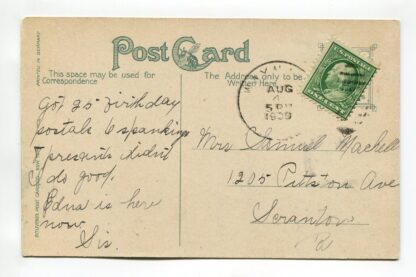 Post Card
This space may be used for
Correspondence
The Address only to be
Written Here
PRINTED IN GERMANY
AUG
4
5 PM
1909
Got 25 birthday
postals 6 spankings
presents didn't
I do good.
Edna is here
now.
Sis.
Mrs Samuel Machell
1205 Pittston Ave
Scranton
Pa